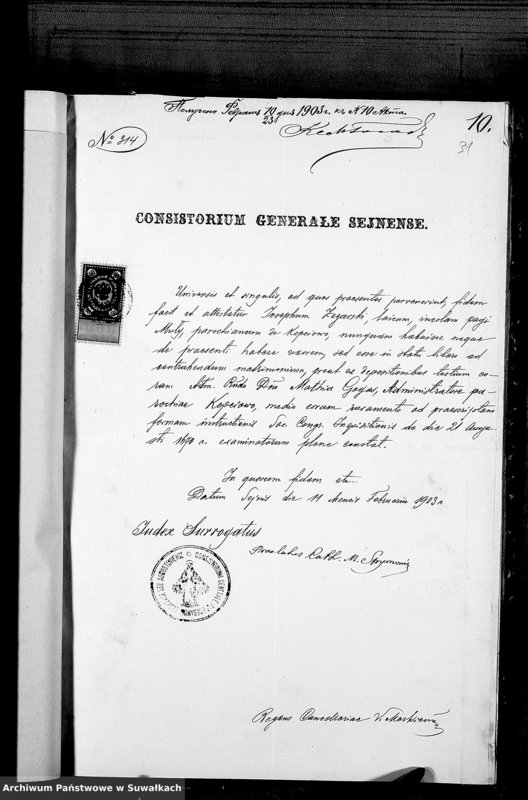 Получено Февраля 10/23 дня 1903 г. къ № 10 Акта.
10.
31
№ 314
CONSISTORIUM GENERALE SEJNENSE.
Universis et singulis, ad quos praesentes pervenerint, fidem
facit et attestatur Josephum laicum, incolam pagi
parochianum de Kopciowo, nunquam habuisse neque
de praesenti habere uxorem, sed esse in statu libero ad
contrahendum matrimonium, prout ex depositionibus testium co-
ram Adm. Rndo Dno Mathia Administratore pa-
rochiae Kopciowo, medio eorum juramento ad praescriptam
formam instructionis Sac. Congr. Inquisitionis de die 21 Augu-
sti 1670 a. examinatorum plene constat.
In quorum fidem etc...
Datum Sejnis die 11 Mensis Februarii 1903 a.
Judex Surrogatus
Praelatus Cath. M.
Regens Cancellariae V.
Archiwum Państwowe w Suwałkach